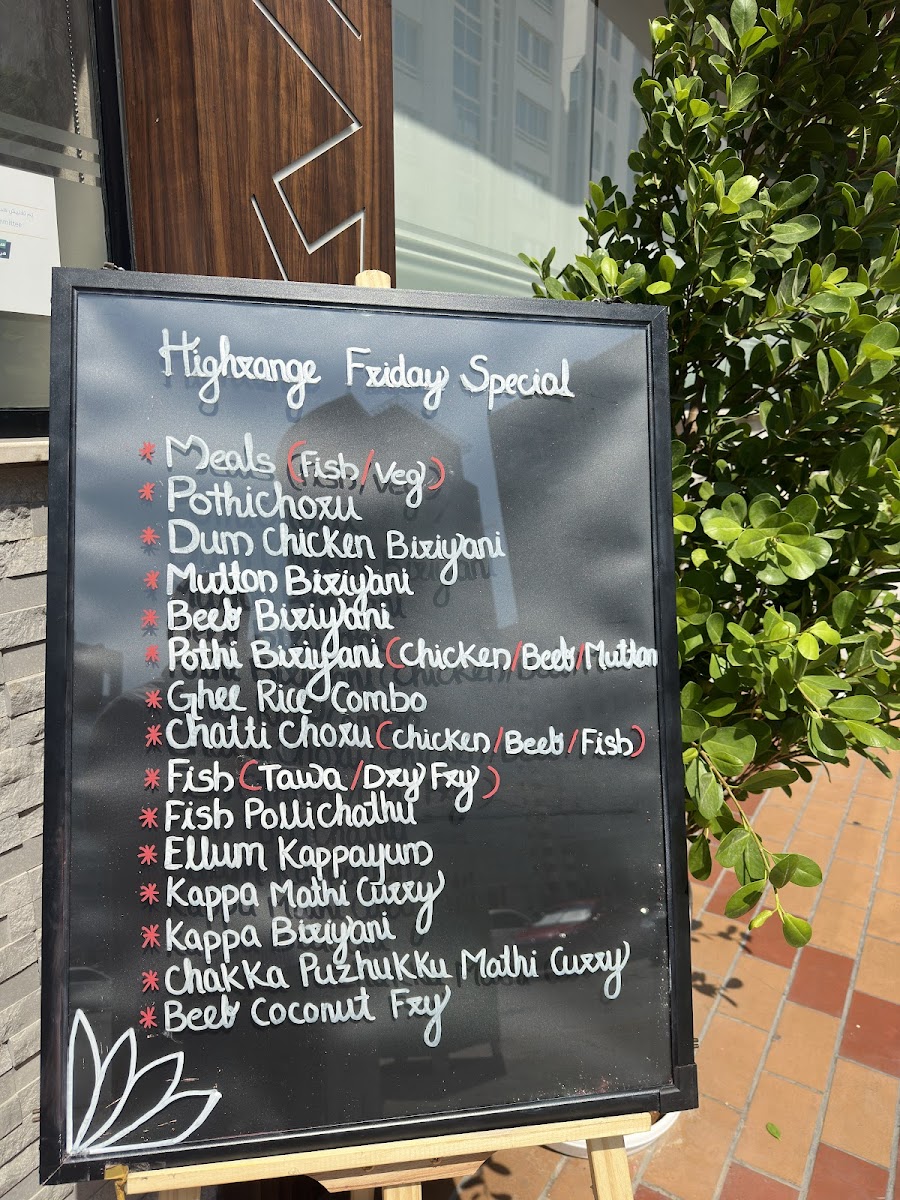 Highrange Friday Special
* Meals (Fish/Veg)
* Pothichoru
* Dum Chicken Biriyani
* Mutton Biriyani
* Beef Biriyani
* Pothi Biriyani (Chicken/Beef/Mutton
* Ghee Rice Combo
* Chatti Choru (Chicken/Beef/Fish)
* Fish (Tawa/Dry Fry)
* Fish Pollichathu
* Ellum Kappayum
* Kappa Mathi Curry
* Kappa Biriyani
* Chakka Puzhukku Mathi Curry
* Beef Coconut Fry